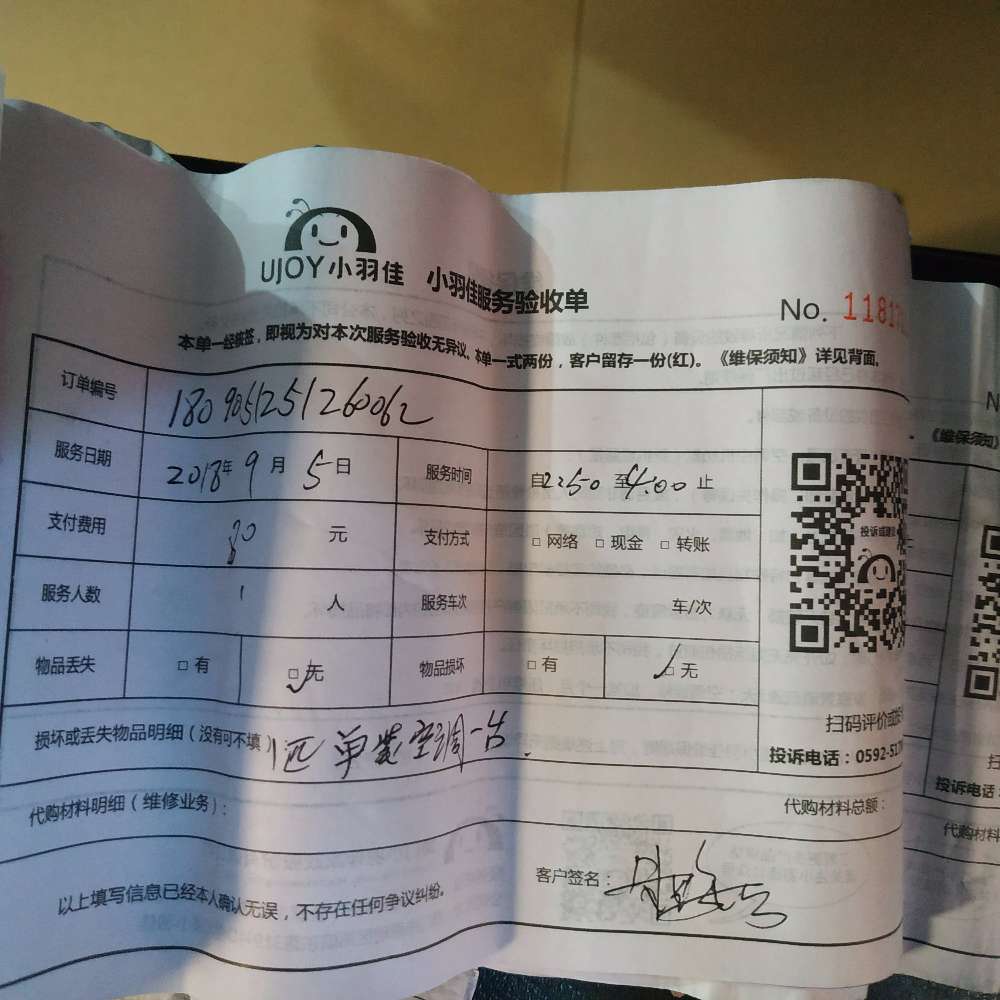 UJOY小羽佳 小羽佳服务验收单
No. 1181
本单一经核签，即视为对本次服务验收无异议。本单一式两份，客户留存一份(红)。《维保须知》详见背面。
订单编号 1809051251260062
服务日期 2018年 9 月 5 日 服务时间 自 2:50 至 4:00 止
支付费用 80 元 支付方式 □ 网络 □ 现金 □ 转账
服务人数 1 人 服务车次 车/次
物品丢失 □ 有 □ 无 物品损坏 □ 有 □ 无
投诉或建议
扫码评价或投
投诉电话：0592-517
损坏或丢失物品明细（没有可不填）1匹 单装空调一台.
代购材料明细（维修业务）： 代购材料总额：
以上填写信息已经本人确认无误，不存在任何争议纠纷。 客户签名：
《维保须知》
扫
投诉电话：
代购材料